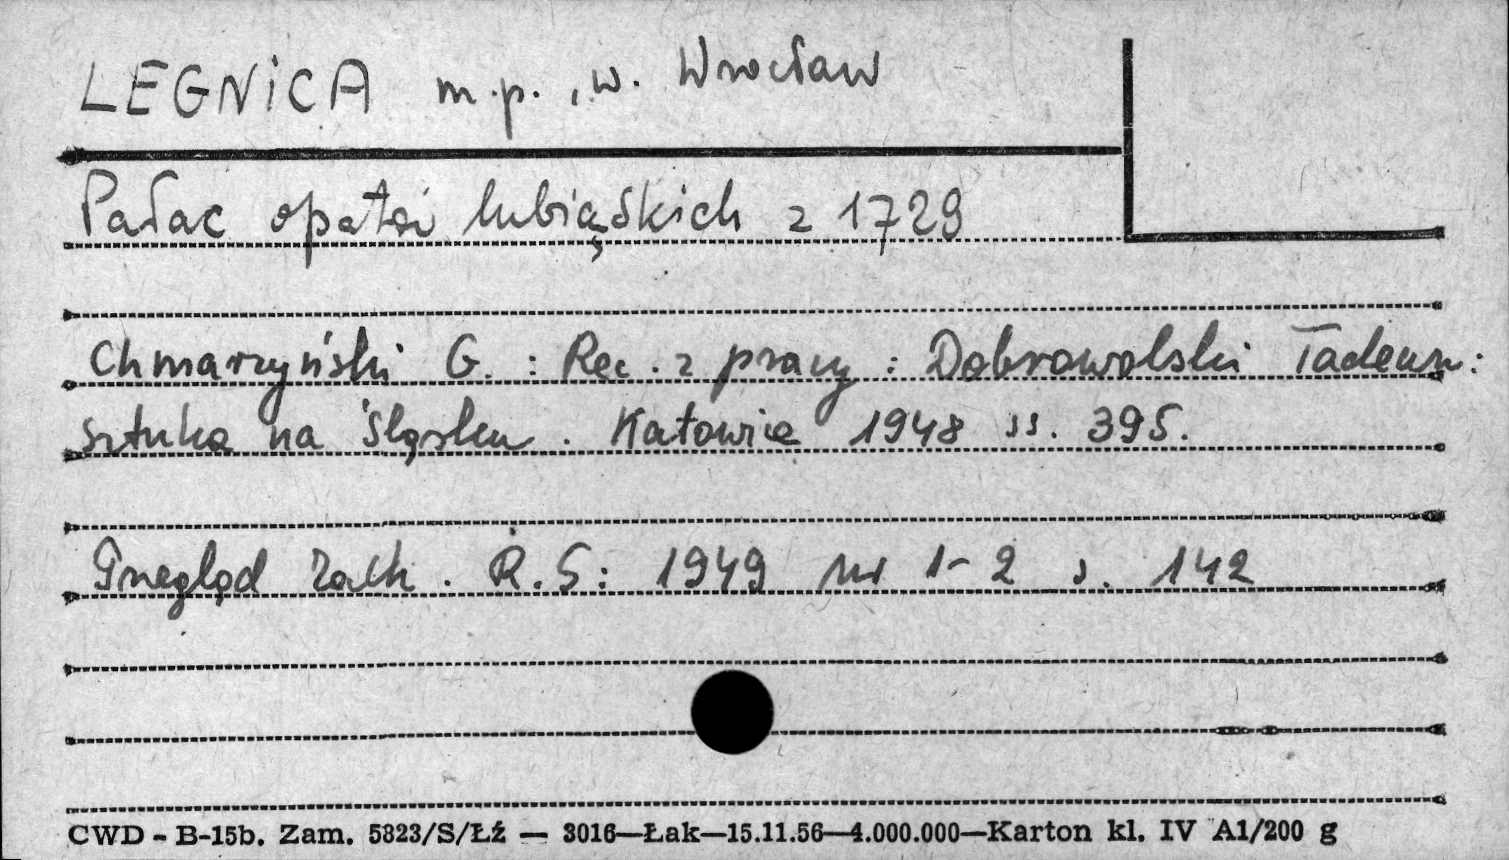 LEGNiCA m.p., w. Wrocław
Pałac opatów lubiąskich z 1729
Chmarzyński G. : Rec. z pracy : Dobrowolski Tadeusz:
sztuka na Śląsku. Katowice 1948 ss. 395.
Przegląd Zach. R.5: 1949 nr 1-2 s. 142
CWD - B-15b. Zam. 5823/S/Łź — 3016—Łak—15.11.56—4.000.000—Karton kl. IV A1/200 g